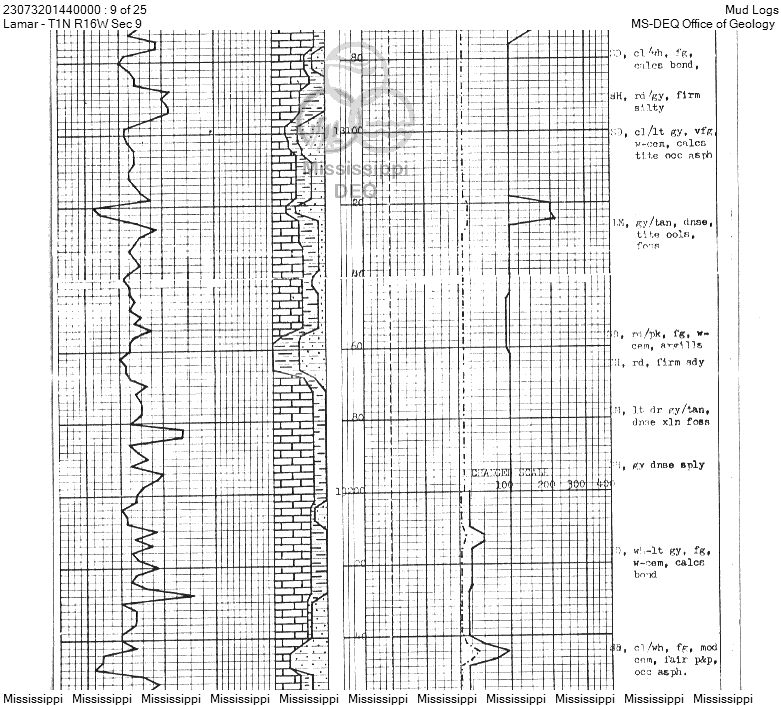 23073201440000 : 9 of 25
Mud Logs
Lamar - T1N R16W Sec 9
MS-DEQ Office of Geology
80
SD, cl/wh, fg,
calcs bond,
SH, rd/gy, firm
silty
13100
SD, cl/lt gy, vfg,
w-cem, calcs
tite occ asph
Mississippi
DEQ
20
LM, gy/tan, dnse,
tite ools,
foss
40
SD, rd/pk, fg, w-
cem, argills
60
SH, rd, firm sdy
LM, lt dr gy/tan,
dnse xln foss
80
gy dnse sply
CHANGED SCALE
100 200 300 400
13200
SD, wh-lt gy, fg,
w-cem, calcs
bond
20
40
cl/wh, fg, mod
cem, fair p&p,
occ asph.
Mississippi Mississippi Mississippi Mississippi Mississippi Mississippi Mississippi Mississippi Mississippi Mississippi Mississippi